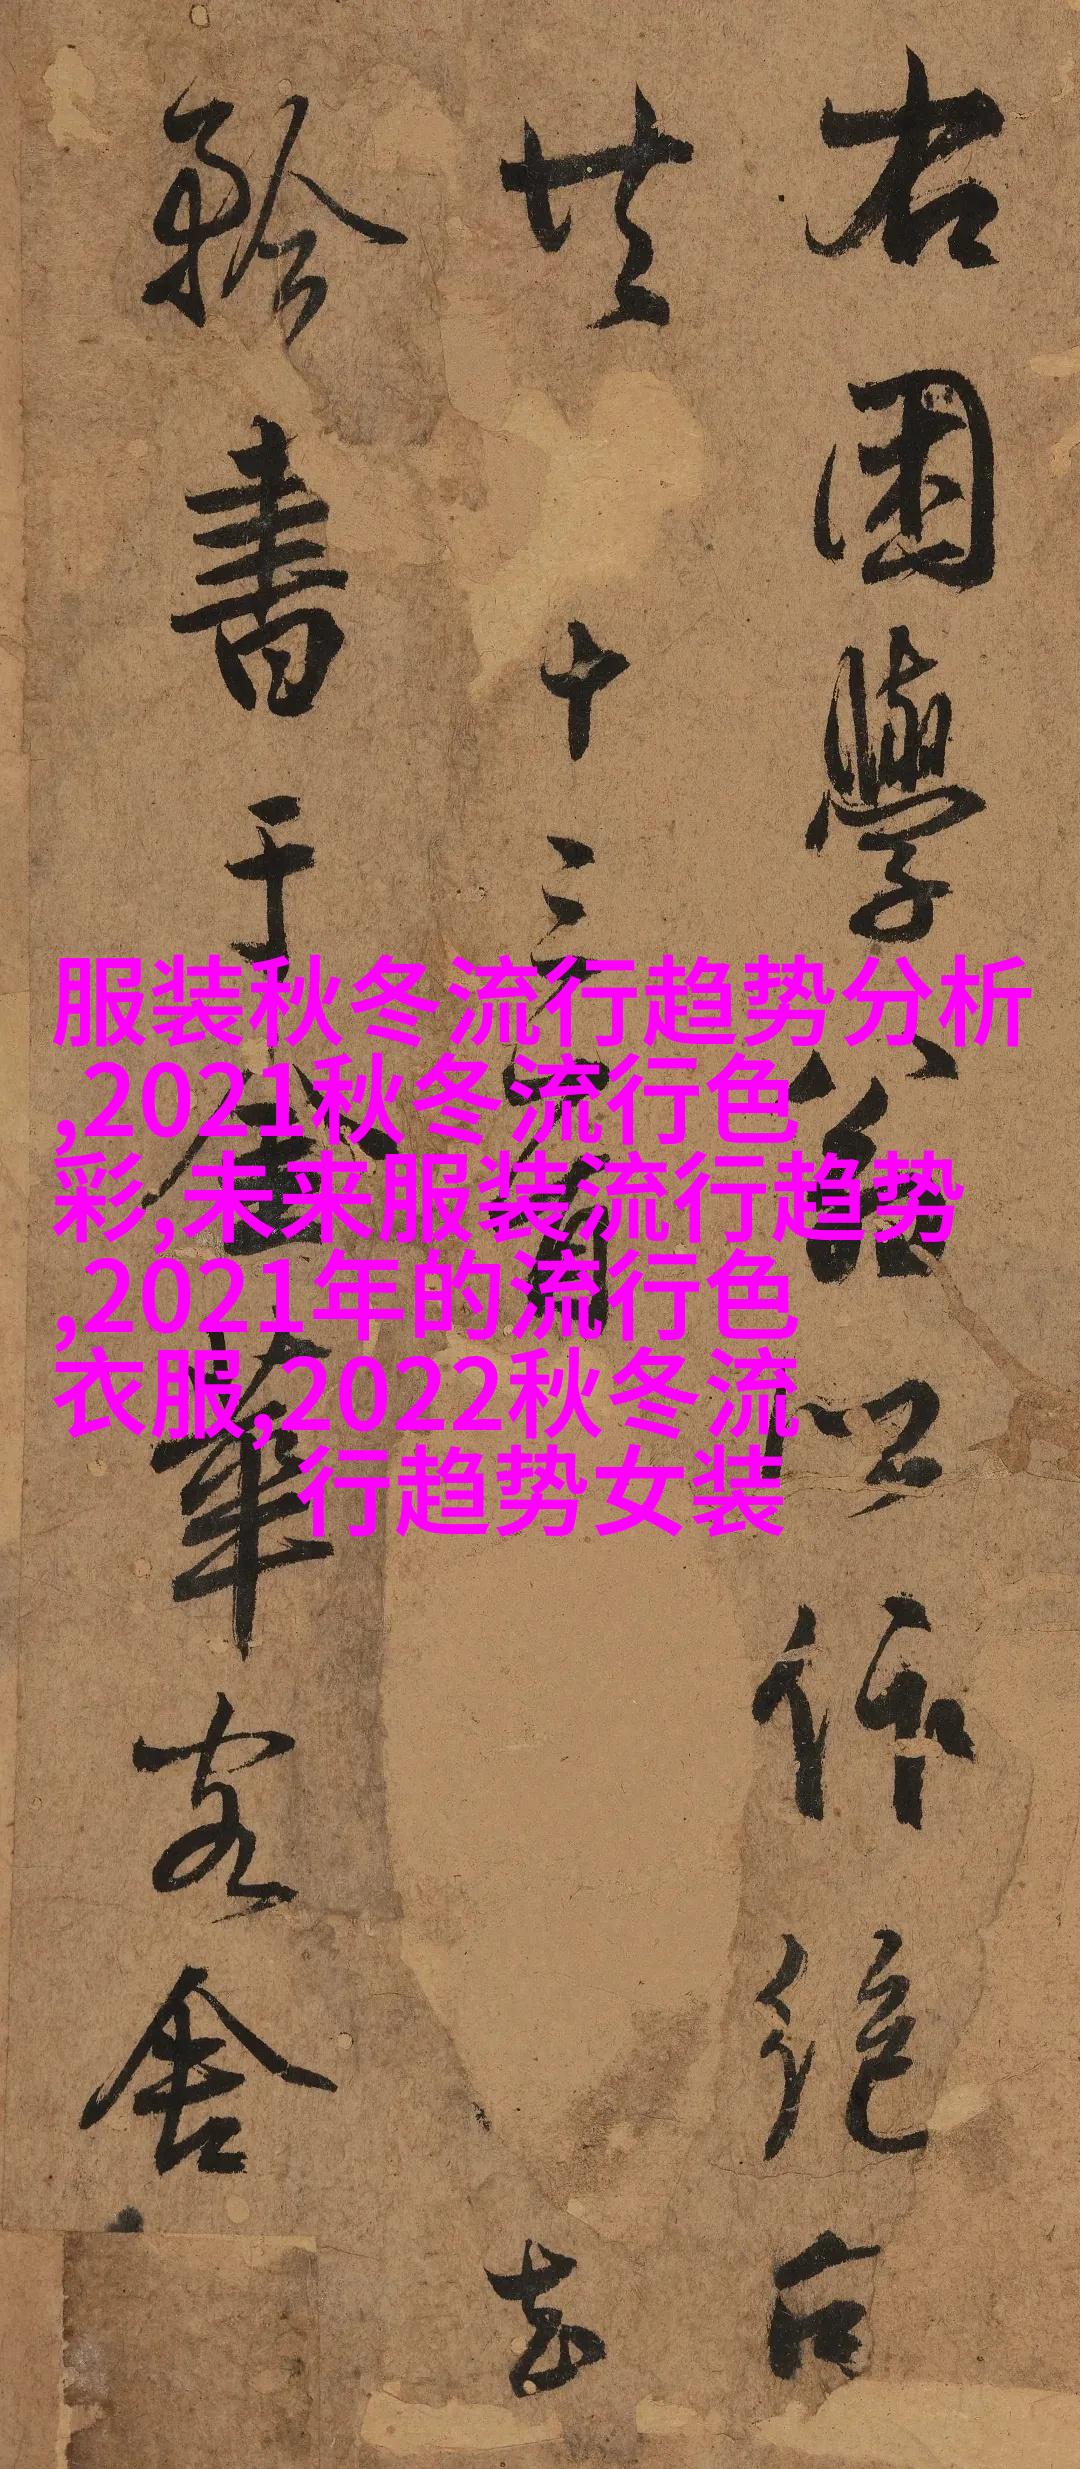 右困學作絕句
共十三首
書于金華客舍
服装秋冬流行趋势分析
,2021秋冬流行色
彩,未来服装流行趋势
,2021年的流行色
衣服,2022秋冬流
行趋势女装